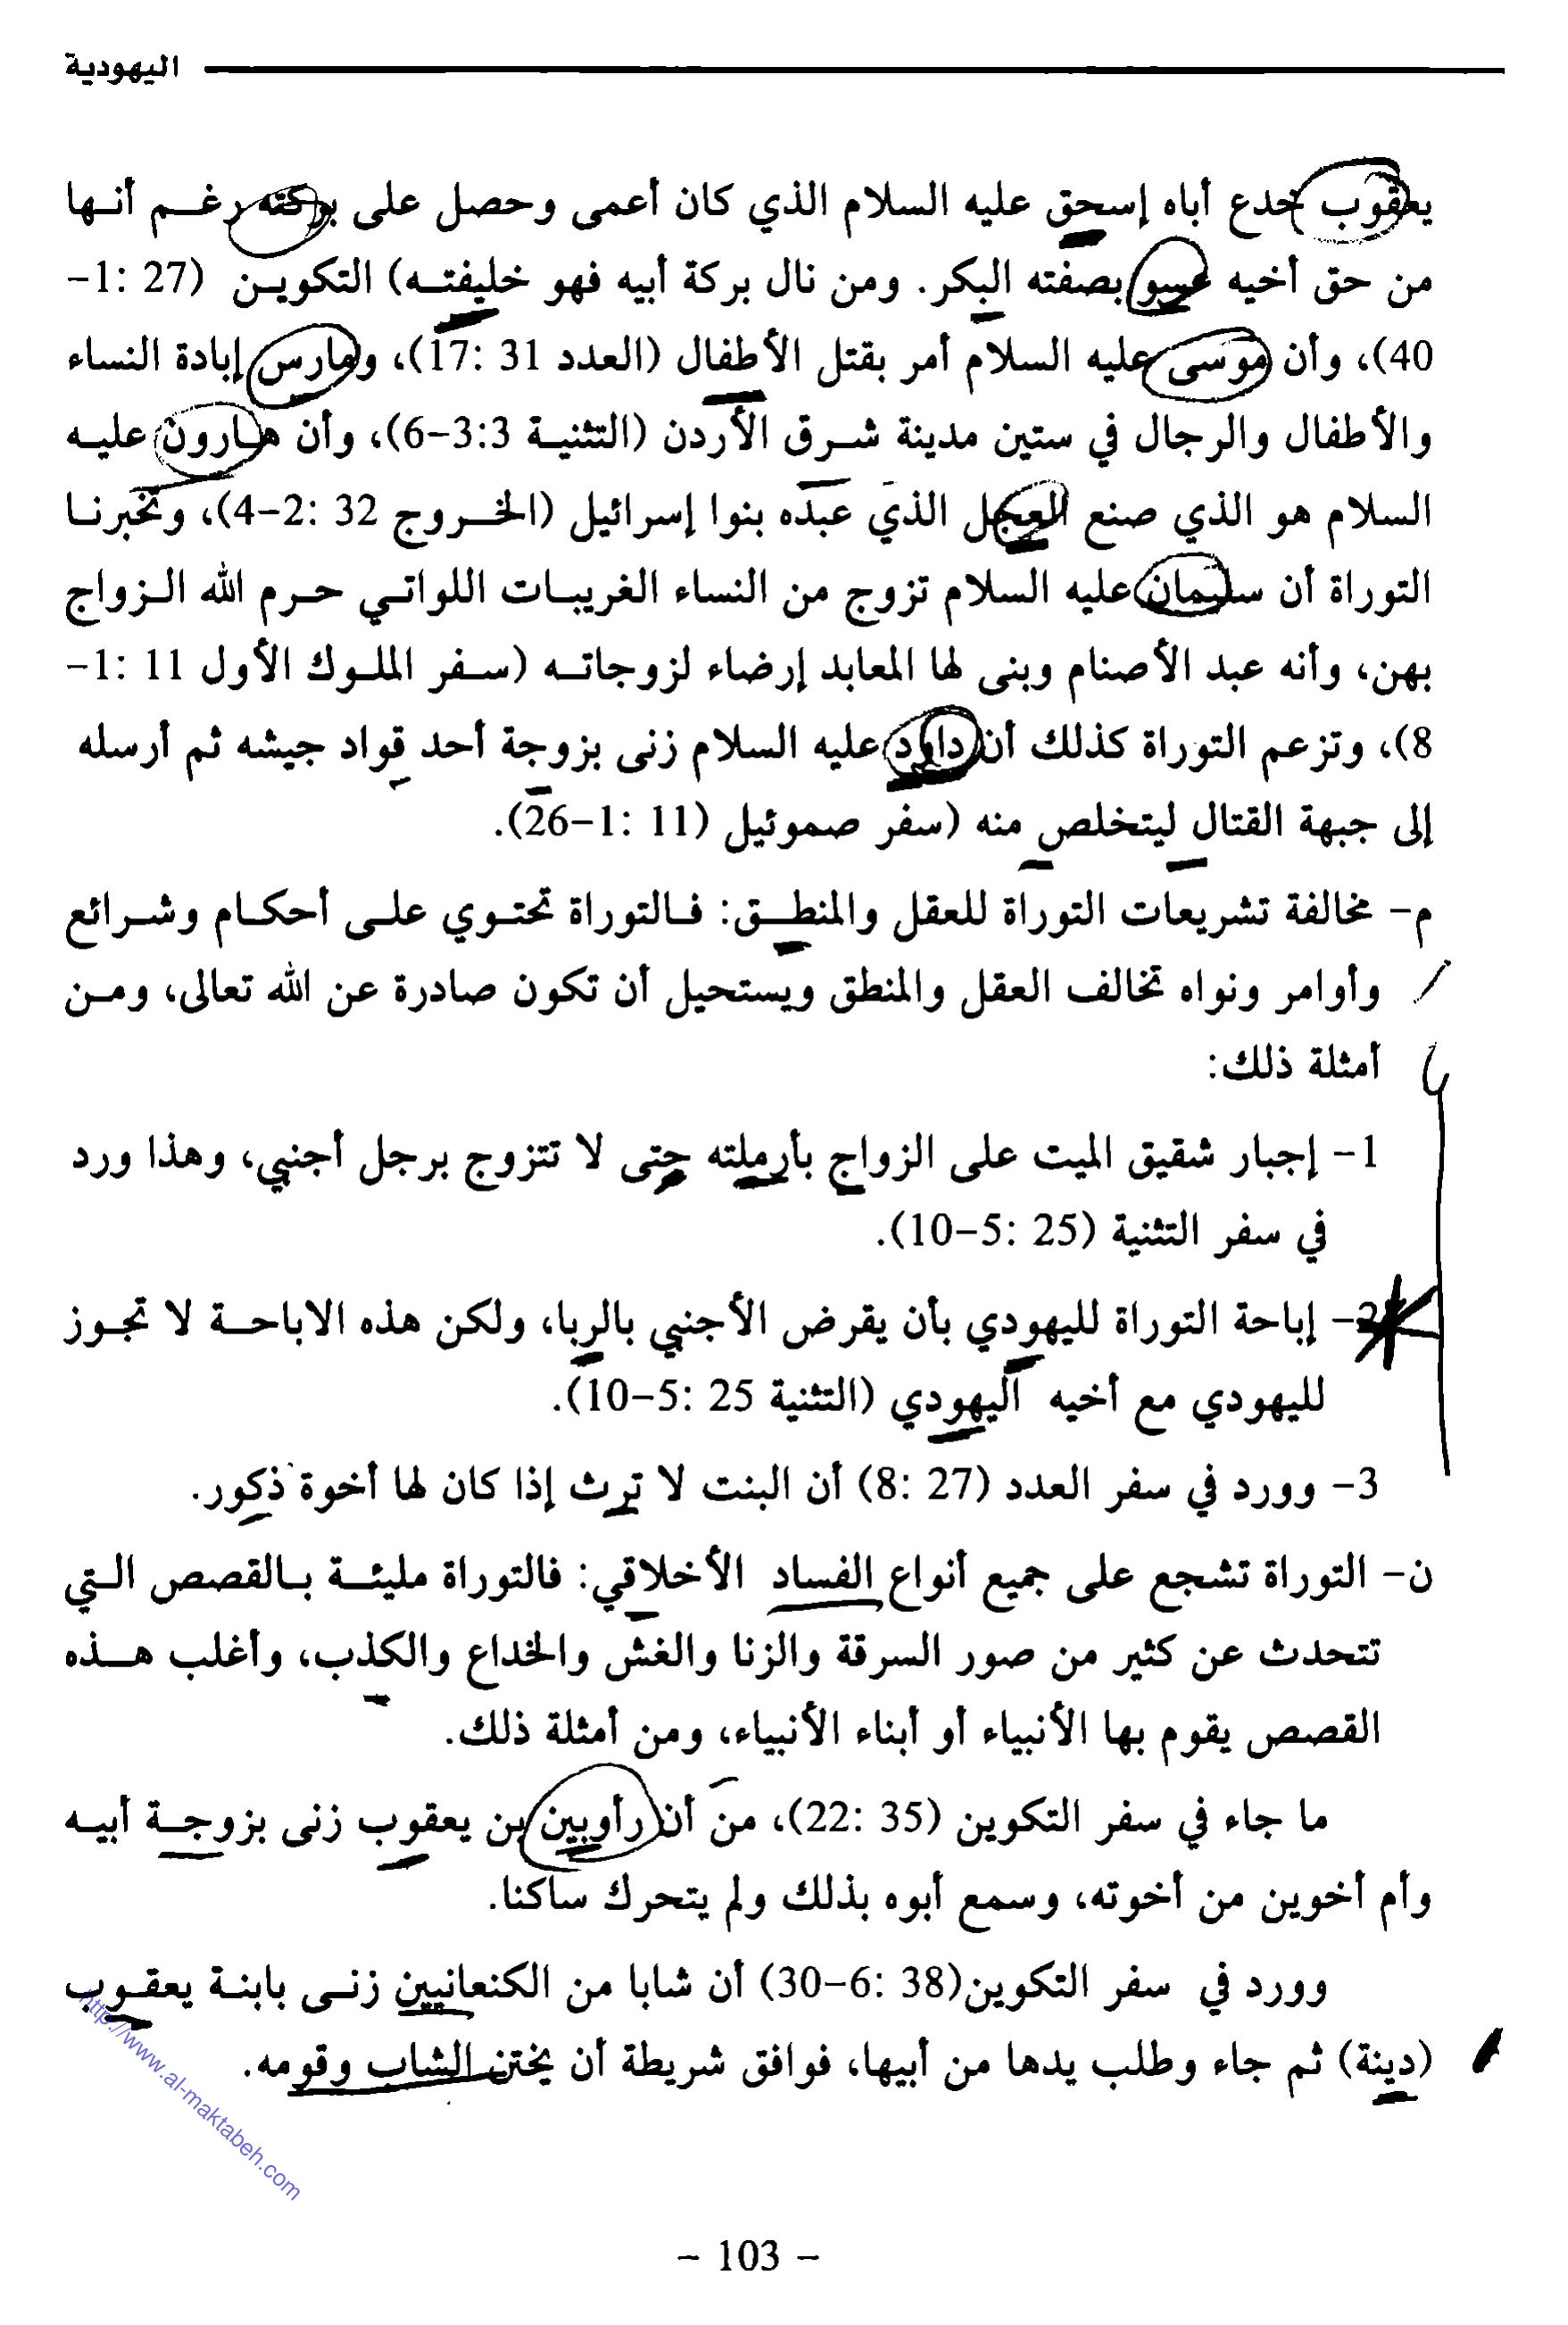 اليهودية
يعقوب خدع أباه إسحق عليه السلام الذي كان أعمى وحصل على بركته رغم أنها
من حق أخيه عسو بصفته البكر. ومن نال بركة أبيه فهو خليفته) التكوين (27 :1-
40)، وأن موسى عليه السلام أمر بقتل الأطفال (العدد 31 :17)، ومارس إبادة النساء
والأطفال والرجال في ستين مدينة شرق الأردن (التثنية 3:3-6)، وأن هارون عليه
السلام هو الذي صنع العجل الذي عبده بنوا إسرائيل (الخروج 32 :2-4)، وتخبرنا
التوراة أن سليمان عليه السلام تزوج من النساء الغريبات اللواتي حرم الله الزواج
بهن، وأنه عبد الأصنام وبنى لها المعابد إرضاء لزوجاته (سفر الملوك الأول 11 :1-
8)، وتزعم التوراة كذلك أن داود عليه السلام زنى بزوجة أحد قواد جيشه ثم أرسله
إلى جبهة القتال ليتخلص منه (سفر صموئيل (11 :1-26).
م- مخالفة تشريعات التوراة للعقل والمنطق: فالتوراة تحتوي على أحكام وشرائع
وأوامر ونواه تخالف العقل والمنطق ويستحيل أن تكون صادرة عن الله تعالى، ومن
أمثلة ذلك:
1- إجبار شقيق الميت على الزواج بأرملته حتى لا تتزوج برجل أجنبي، وهذا ورد
في سفر التثنية (25 :5-10).
2- إباحة التوراة لليهودي بأن يقرض الأجنبي بالربا، ولكن هذه الاباحة لا تجوز
لليهودي مع أخيه اليهودي (التثنية 25 :5-10).
3- وورد في سفر العدد (27 :8) أن البنت لا ترث إذا كان لها أخوة ذكور.
ن- التوراة تشجع على جميع أنواع الفساد الأخلاقي: فالتوراة مليئة بالقصص التي
تتحدث عن كثير من صور السرقة والزنا والغش والخداع والكذب، وأغلب هذه
القصص يقوم بها الأنبياء أو أبناء الأنبياء، ومن أمثلة ذلك.
ما جاء في سفر التكوين (35 :22)، من أن رأوبين بن يعقوب زنى بزوجة أبيه
وأم أخوين من أخوته، وسمع أبوه بذلك ولم يتحرك ساكنا.
وورد في سفر التكوين(38 :6-30) أن شابا من الكنعانيين زنى بابنة يعقوب
(دينة) ثم جاء وطلب يدها من أبيها، فوافق شريطة أن يختن الشاب وقومه.
http://www.al-maktabeh.com
- 103 -